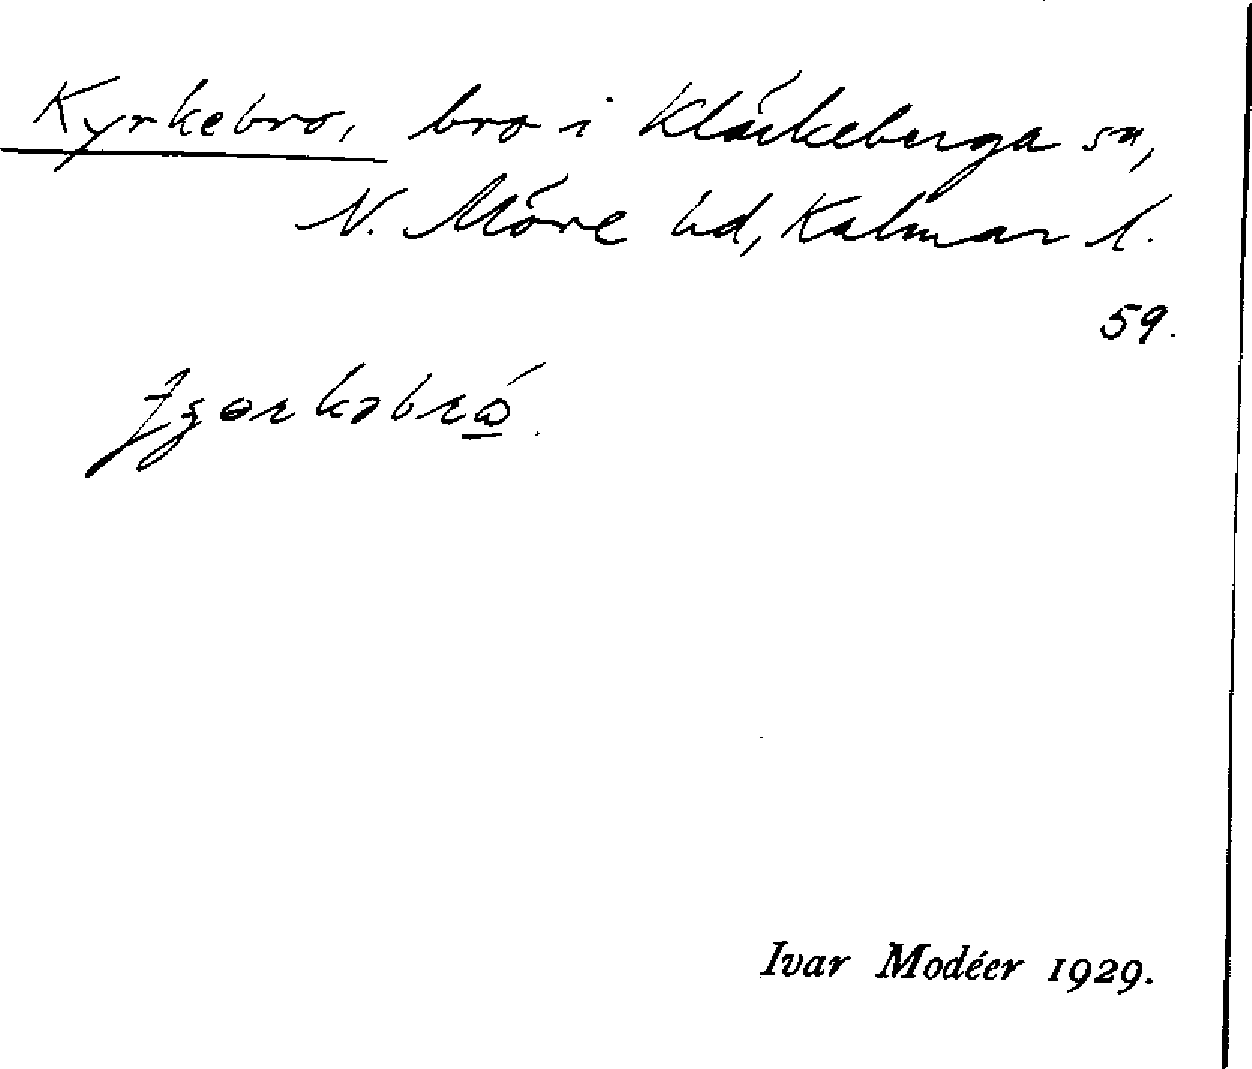 Kyrkebro, bro i Kläckeberga sn,
N. Möre hd, Kalmar l.
59.
Ivar Modéer 1929.